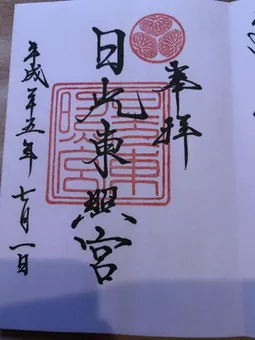 奉拝
日光東照宮
平成廿五年 七月一日